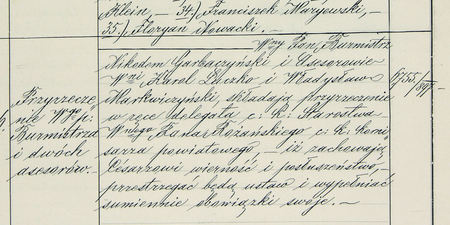 Klein, — 34.) Franciszek Maryewski, —
35.) Floryan Nowacki. —
Przyrzecze-
nie W^go p:
Burmistrza
i dwóch
asesorów. —
W^ny Pan Burmistrz
Nikodem Garbaczyński i Asesorowie
W^ni Karol Liszko i Władysław
Markwiczyński, składają przyrzeczenie
w ręce delegata c: k: Starostwa
W^nego Pana Rożańskiego c: k: komi
sarza powiatowego iż zachowają
Cesarzowi wierność i posłuszeństwo,
przestrzegać będą ustaw i wypełniać
sumiennie obowiązki swoje. —